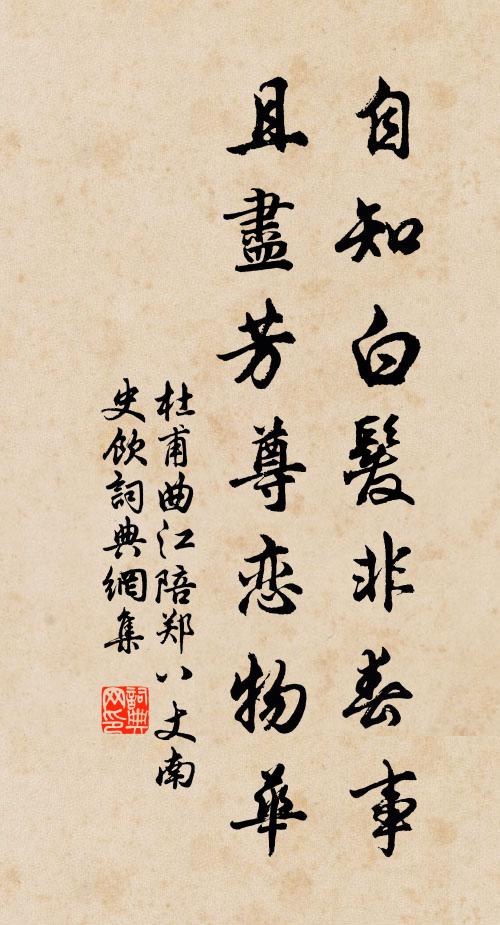 自知白髮非春事
且盡芳尊恋物華
杜甫曲江陪郑八丈南
史飲詞典網集
詞典
网印